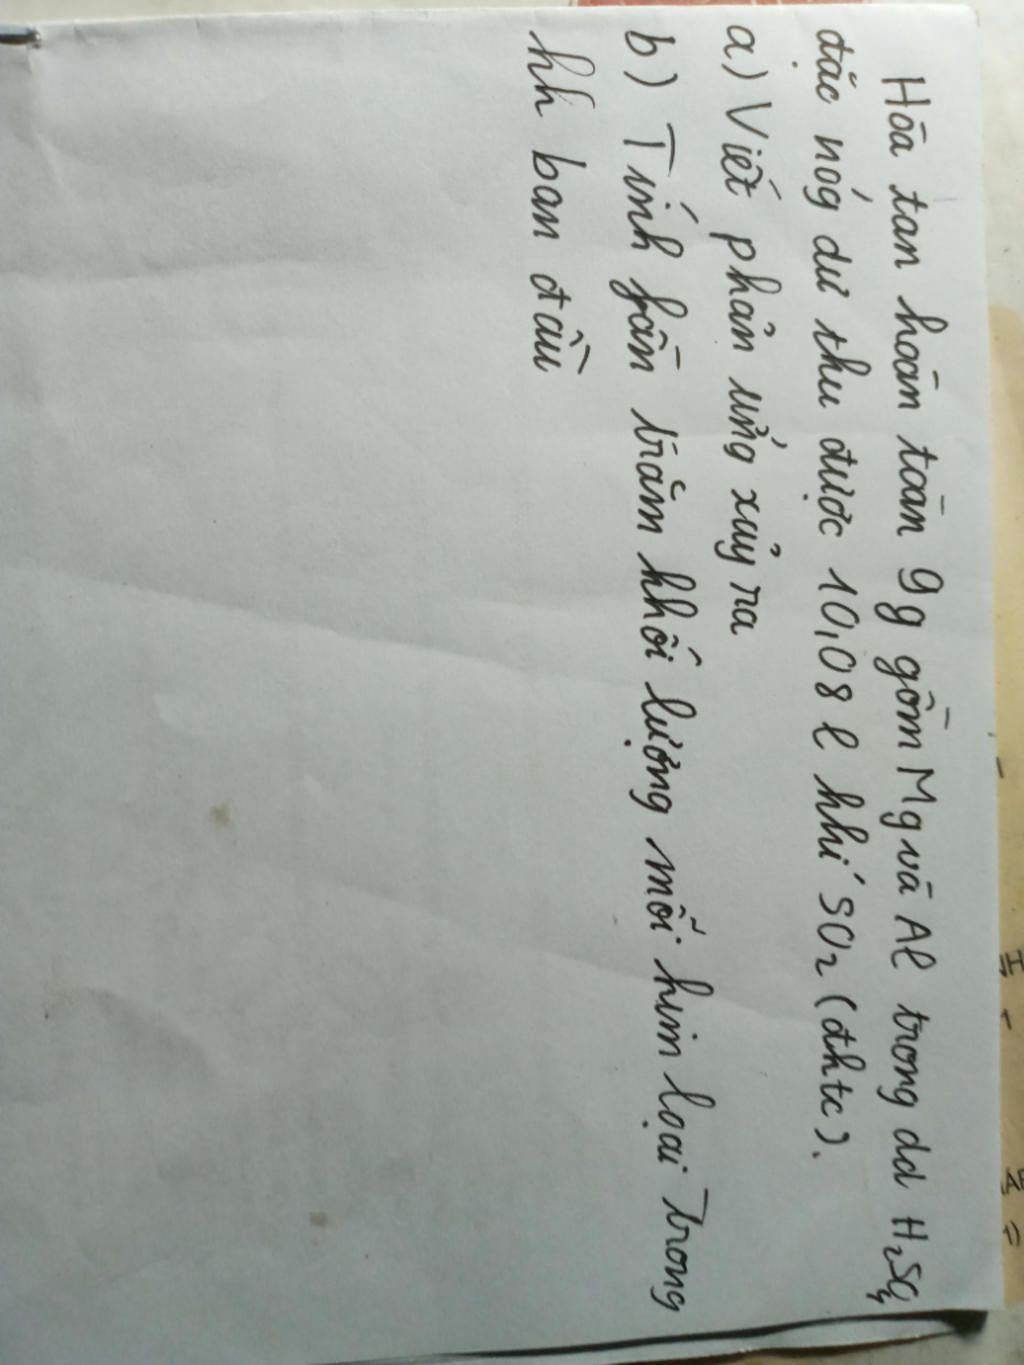 Hòa tan hoàn toàn 9g gồm Mg và Al trong dd H₂SO₄
đặc nóg dư thu được 10,08 l khí SO₂ (đktc).
a) Viết phản ứng xảy ra
b) Tính fần trăm khối lượng mỗi kim loại trong
hh ban đầu